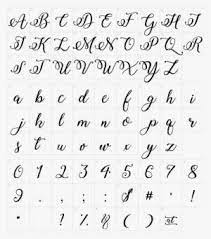 A B C D E F G H
I J K L M N O P Q
R S T U V W X Y Z
a b c d e f g h i
j k l m n o p q r
s t u v w x y z
0 1 2 3 4 5 6 7 8
9 . , : ; $ # ' !
" / ? % & ( )